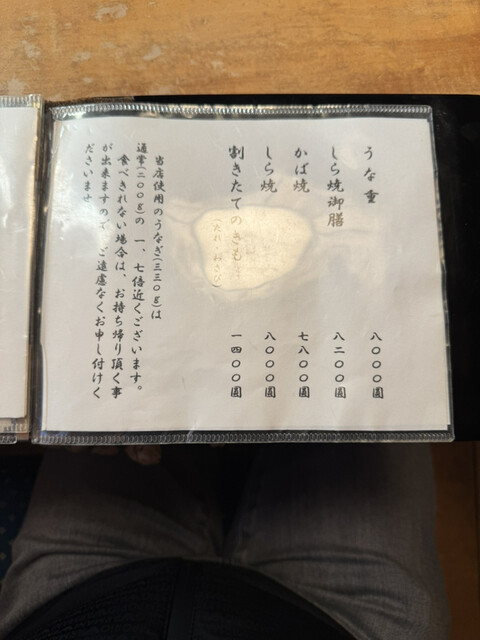 うな重 八〇〇〇圓
しら焼御膳 八二〇〇圓
かば焼 七八〇〇圓
しら焼 八〇〇〇圓
割きたてのきも 一四〇〇圓
当店使用のうなぎ(三三〇g)は
通常(二〇〇g)の一、七倍近くございます。
食べきれない場合は、お持ち帰り頂く事
が出来ますので、ご遠慮なくお申し付けく
ださいませ